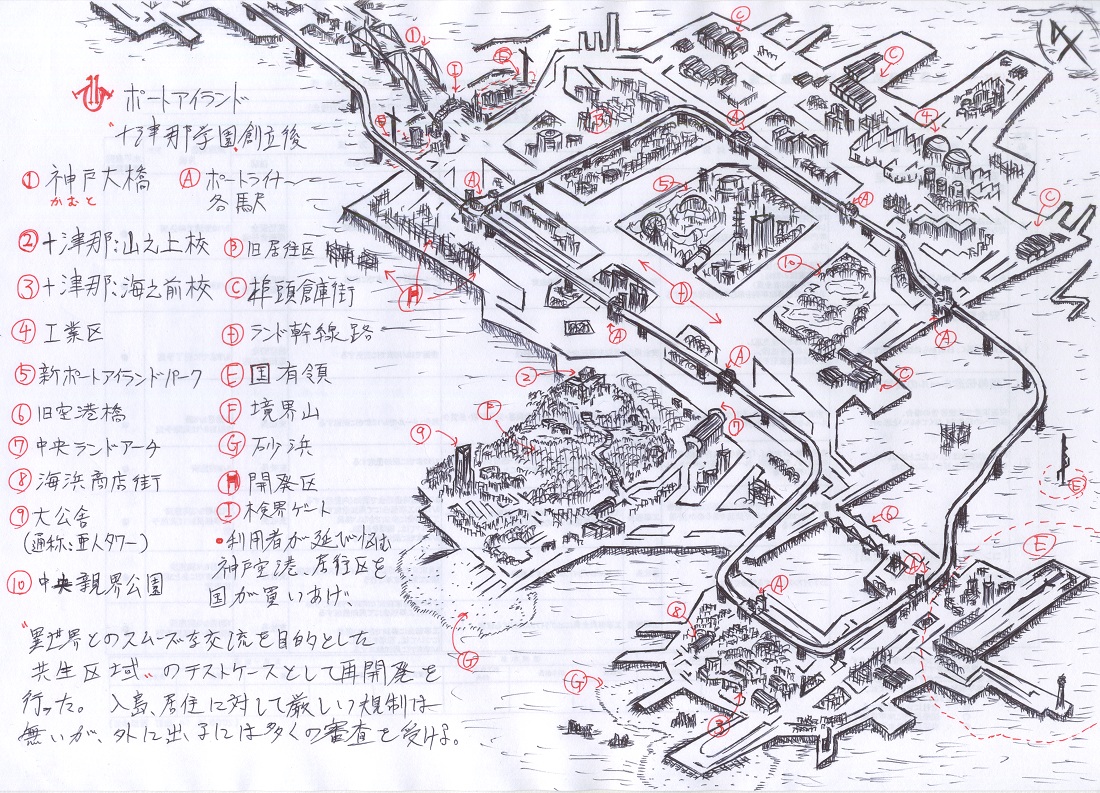 ポートアイランド
"十津那学園創立後
① 神戸大橋
かむと
Ⓐ ポートライナー
各駅
② 十津那:山之上校
Ⓑ 旧居住区
③ 十津那:海之前校
Ⓒ 埠頭倉庫街
④ 工業区
ランド幹線路
⑤ 新ポートアイランドパーク
Ⓔ 国有領
⑥ 旧空港橋
Ⓕ 境界山
⑦ 中央ランドアーチ
Ⓖ 砂浜
⑧ 海浜商店街
Ⓗ 開発区
⑨ 大公舎
(通称:亜人タワー)
Ⓘ 境界ゲート
⑩ 中央親界公園
・利用者が延び悩む
神戸空港、居住区を
国が買いあげ
"異世界とのスムーズな交流を目的とした
共生区域"のテストケースとして再開発を
行った。入島、居住に対して厳しい規制は
無いが、外に出、るには多くの審査を受ける。